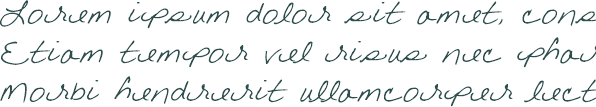 Lorem ipsum dolor sit amet, cons
Etiam tempor vel risus nec phar
Morbi hendrerit ullamcorper luct